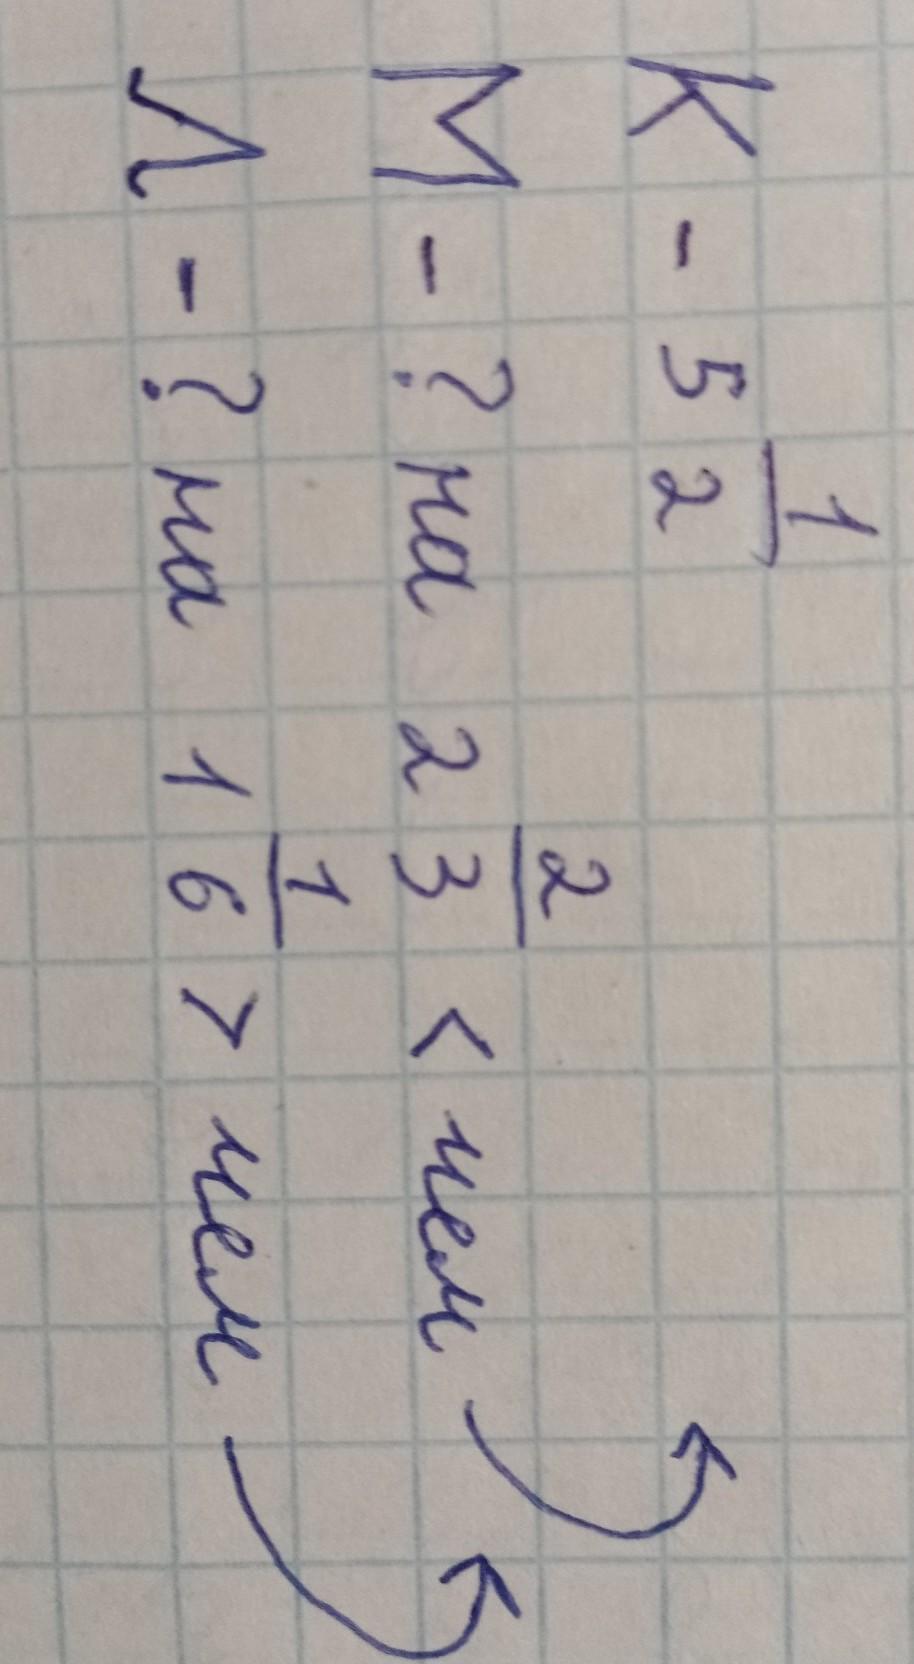 К - 5 1/2
М - ? на 2 2/3 < чем
Л - ? на 1 1/6 > чем